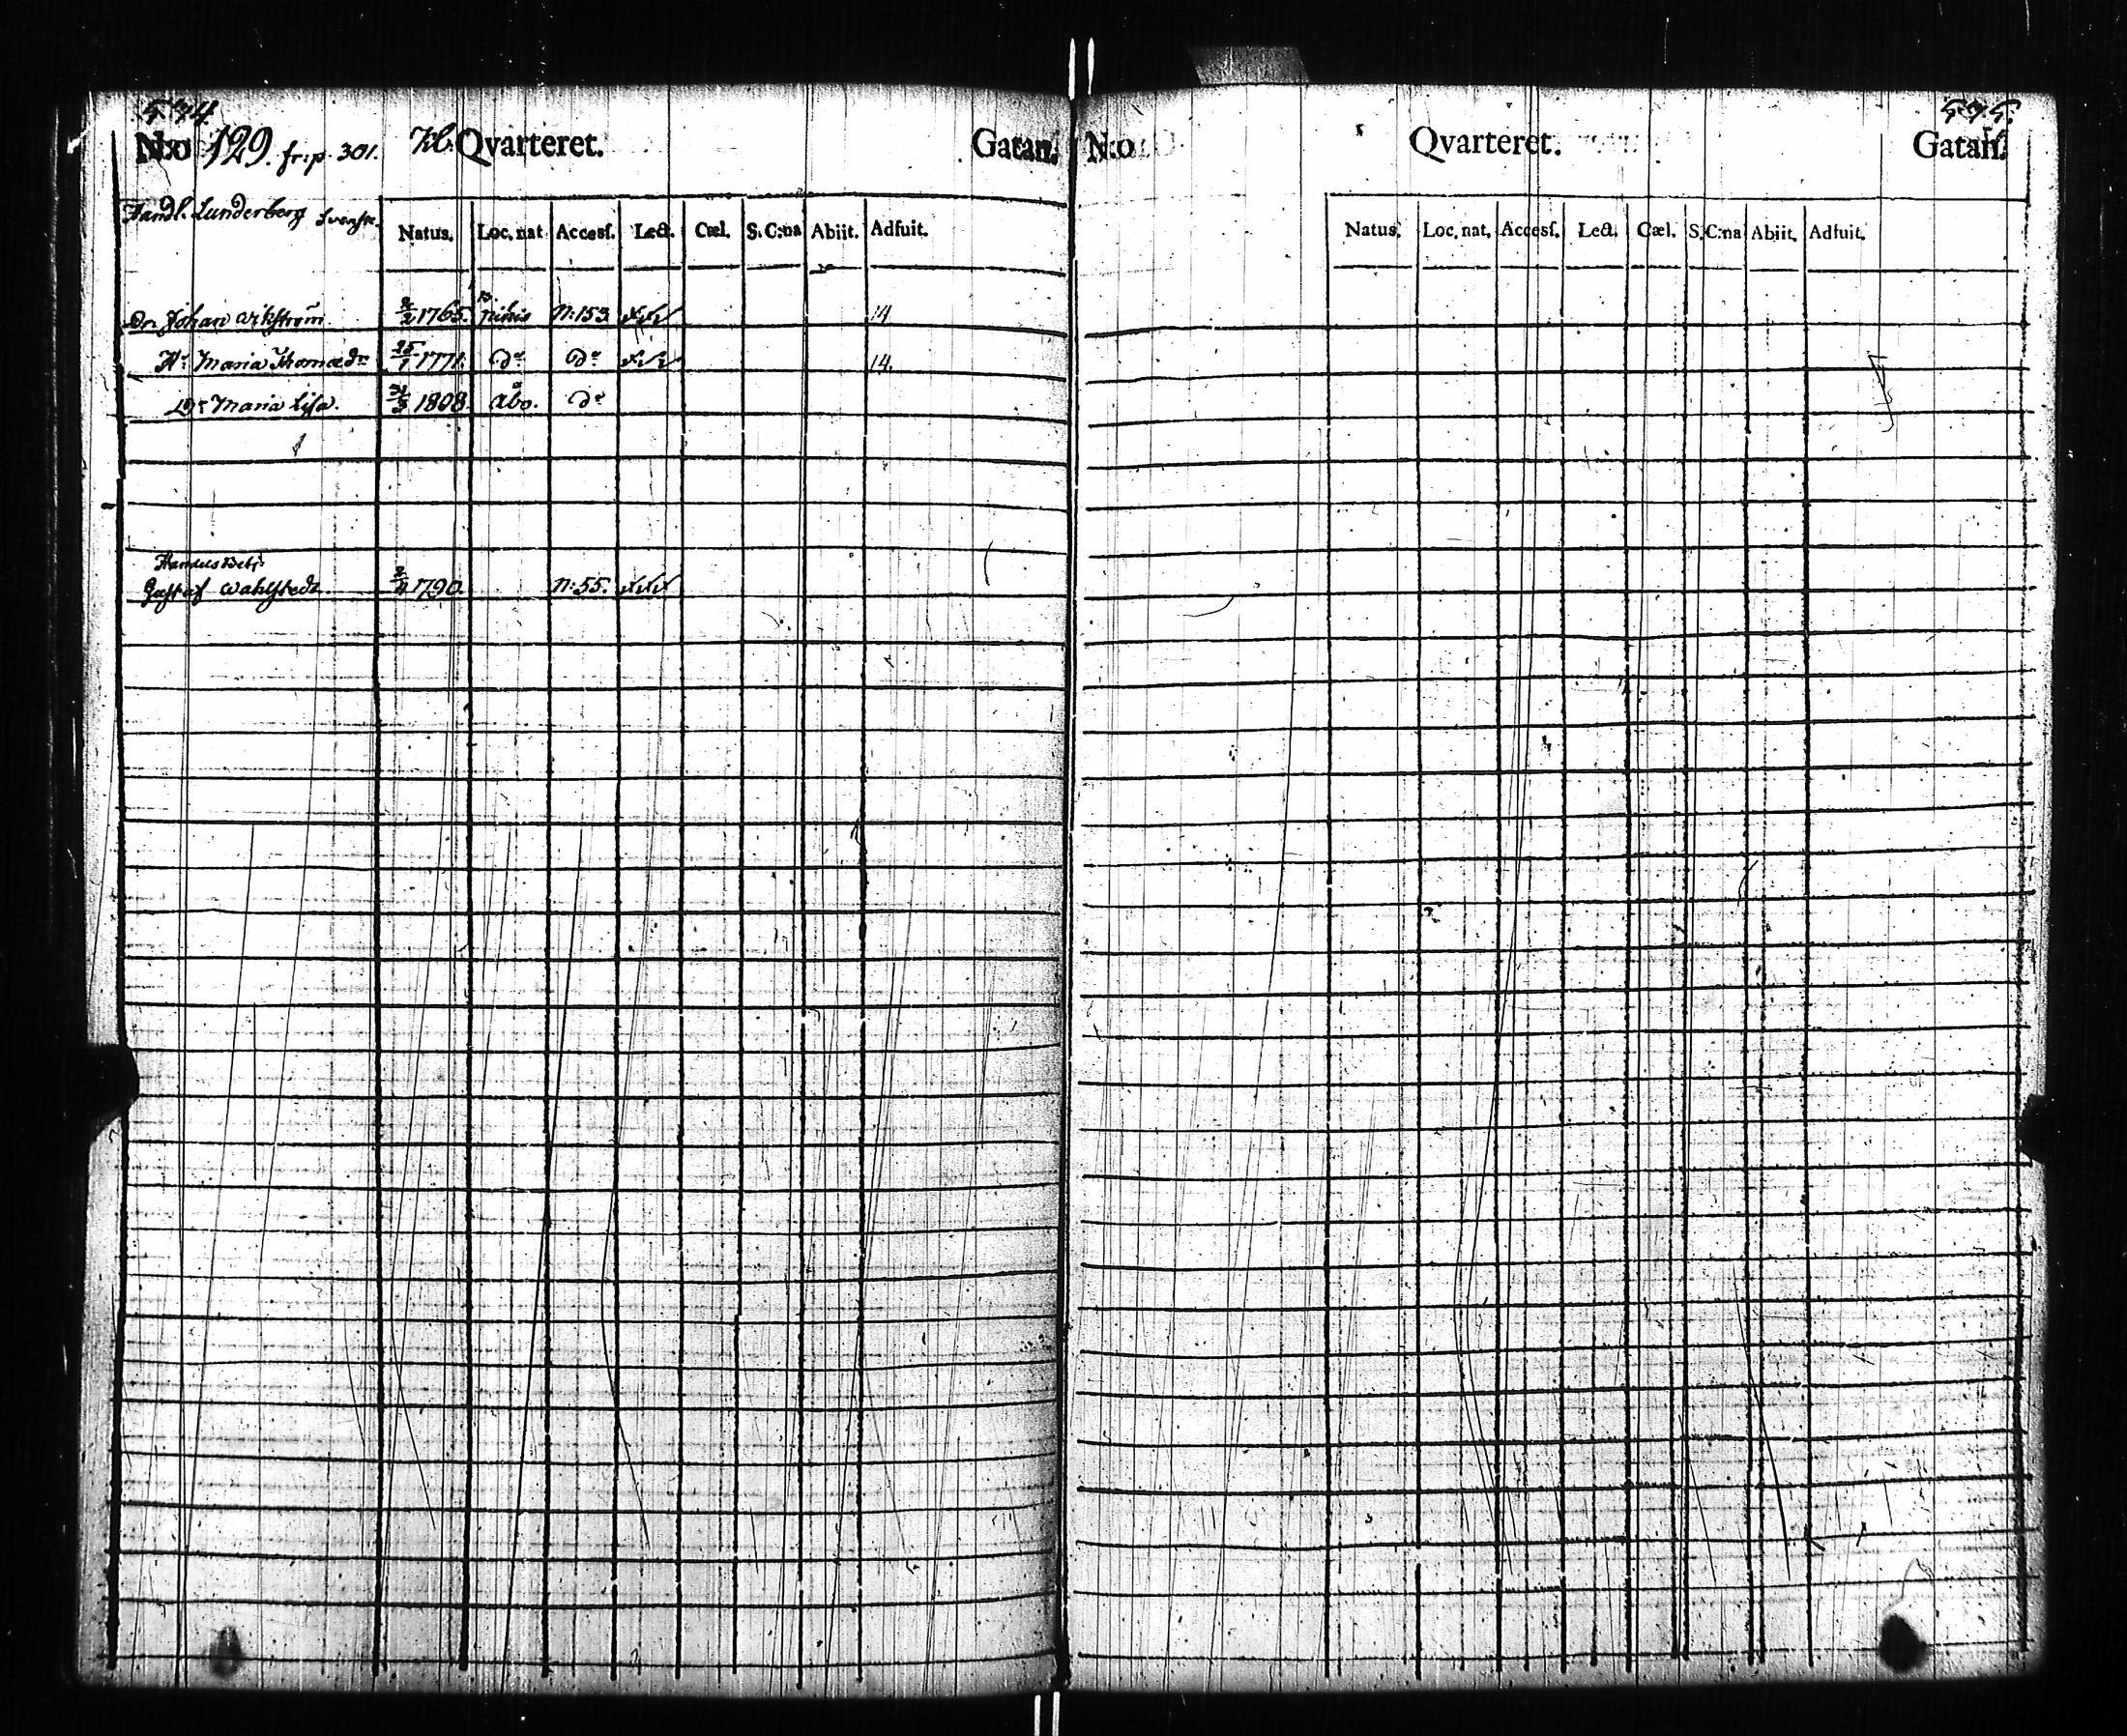 574.
N:o 129. fr. p. 301. Kl. Qvarteret. Gatan.
Handl. Lunderberg
Natus. Loc. nat Access. Lect. Cæl. S. C:na Abiit. Adfuit.
Dr. Johan Wikström 1765. pikis N:153 14
H: Maria Thomædr 1771. do do 14.
Dr Maria Lisa. 1808 åbo. do
Handels Betj.
Gustaf Wahlstedt. 1790. N:55.
575.
N:o Qvarteret. Gatan.
Natus. Loc. nat. Access. Lect. Cæl. S. C:na Abiit. Adfuit.